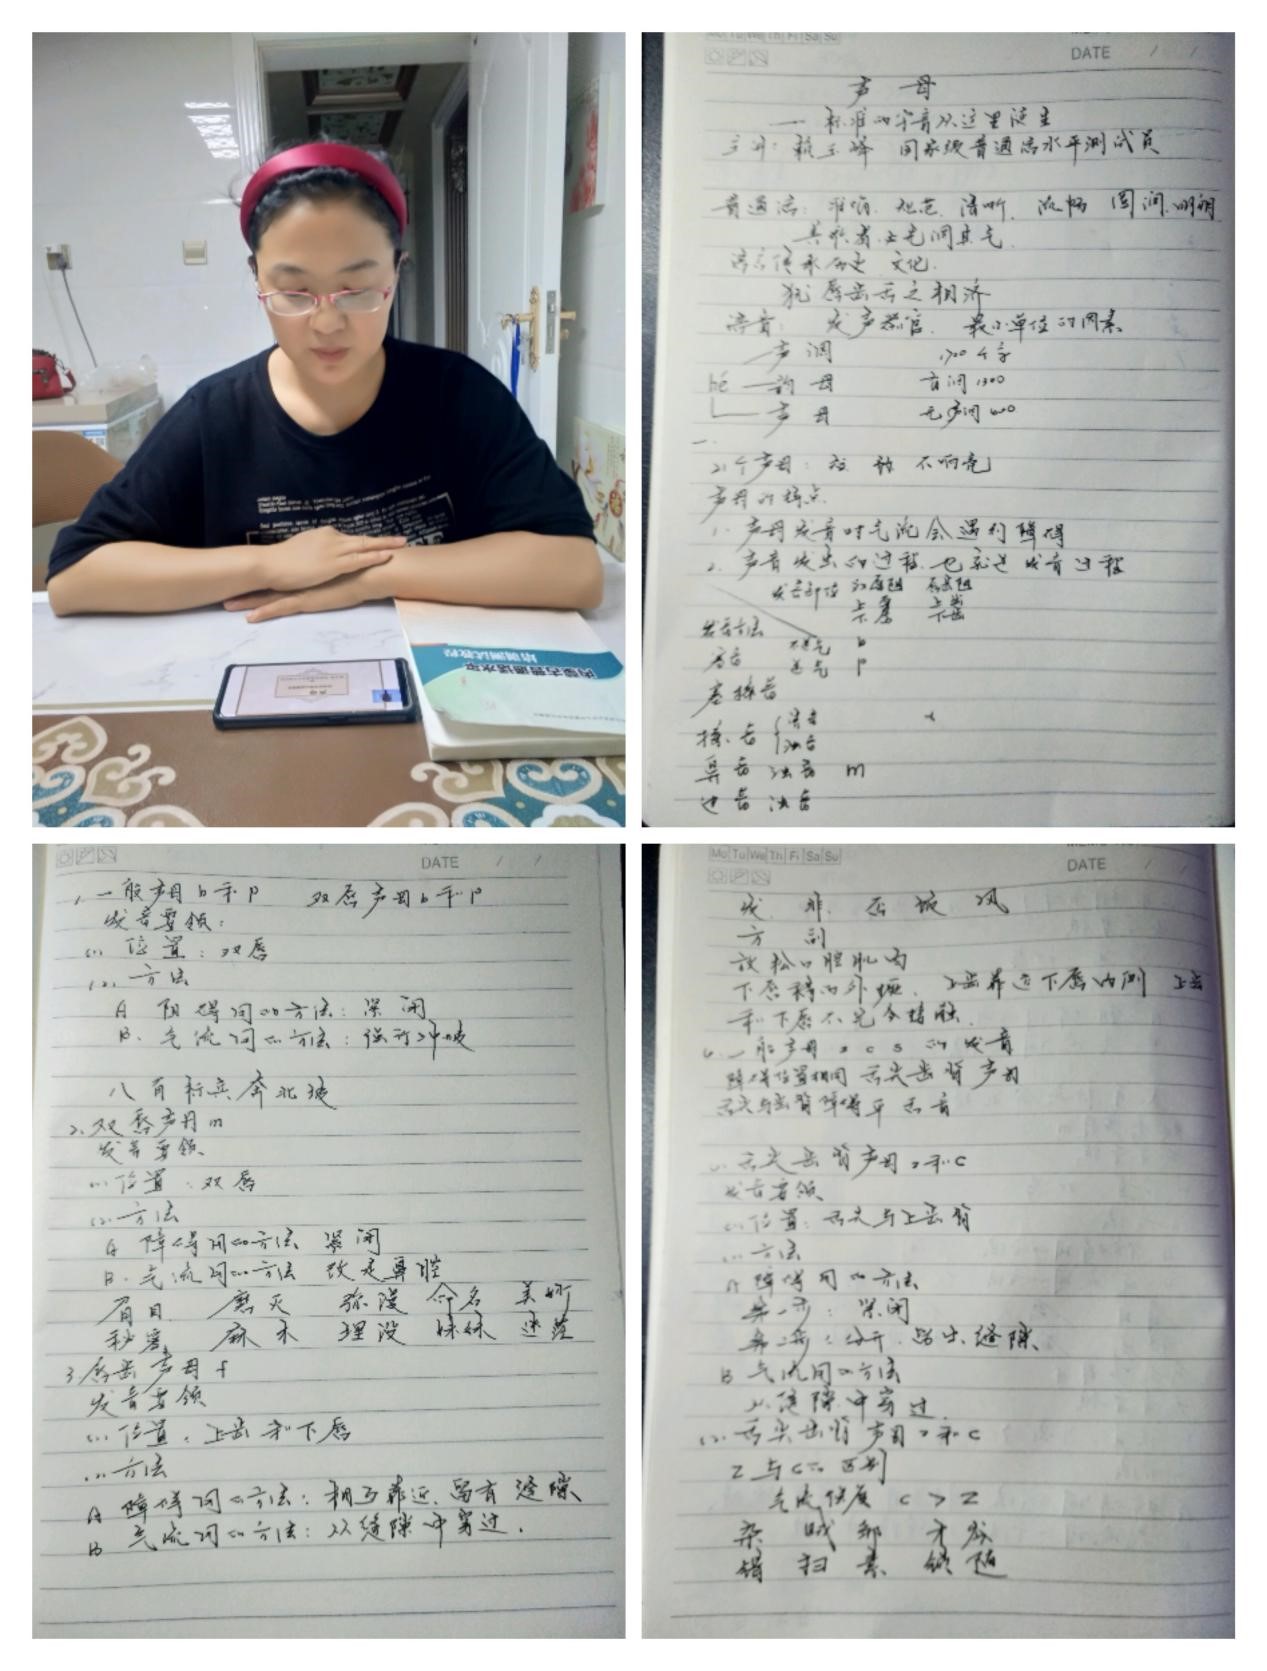 内蒙古普通话水平
培训测试教程
Mo Tu We Th Fr Sa Su
DATE / /
声母
一 标准的字音从这里诞生
主讲: 国家级普通话水平测试员
普通话: 准确 规范 清晰 流畅 圆润 明朗
语言传承历史 文化
唇齿舌之相济
语音: 发声器官 最小单位的因素
声调 1300个音
hé 韵母 音调1300
声母 无声调400
一.
21个声母: 不响亮
声母的特点
1. 声母发音时气流会遇到障碍
2. 声音发出的过程也就是发音过程
发音部位 双唇阻 唇齿阻
上唇 上齿
下唇 下唇
发音方法
塞音 不送气 b
送气 p
塞擦音
擦音 清音
浊音
鼻音 浊音 m
边音 浊音
DATE / /
1. 一般声母b和p 双唇声母b和p
发音要领:
(1) 位置: 双唇
(2) 方法
A 阻碍间的方法: 紧闭
B. 气流间的方法: 强行冲破
八百标兵奔北坡
2. 双唇声母m
发音要领
(1) 位置: 双唇
(2) 方法
A 障碍间的方法 紧闭
B. 气流间的方法 改走鼻腔
眉目 磨灭 弥漫 命名 美妙
秘密 麻木 埋没 妹妹 迷茫
3. 唇齿声母f
发音要领
(1) 位置. 上齿和下唇
(2) 方法
A 障碍间的方法: 相互靠近, 留有缝隙
B 气流间的方法: 从缝隙中穿过.
Mo Tu We Th Fr Sa Su
DATE / /
发 非 否 饭 风
方
放松口腔肌肉
上齿靠近下唇内侧 上齿
和下唇不完全接触.
4. 一般声母z c s的发音
障碍位置相同 舌尖齿背声母
舌尖与齿背障碍 平舌音
(1) 舌尖齿背声母z和c
发音要领
(1) 位置: 舌尖与上齿背
(2) 方法
A 障碍间的方法
第一步: 紧闭
第二步: 分开, 留出缝隙
B 气流间的方法
从缝隙中穿过
(2) 舌尖齿背声母z和c
z与c的区别
气流强度 c > z
杂 贼 邹 才
错 扫 素 锁 随